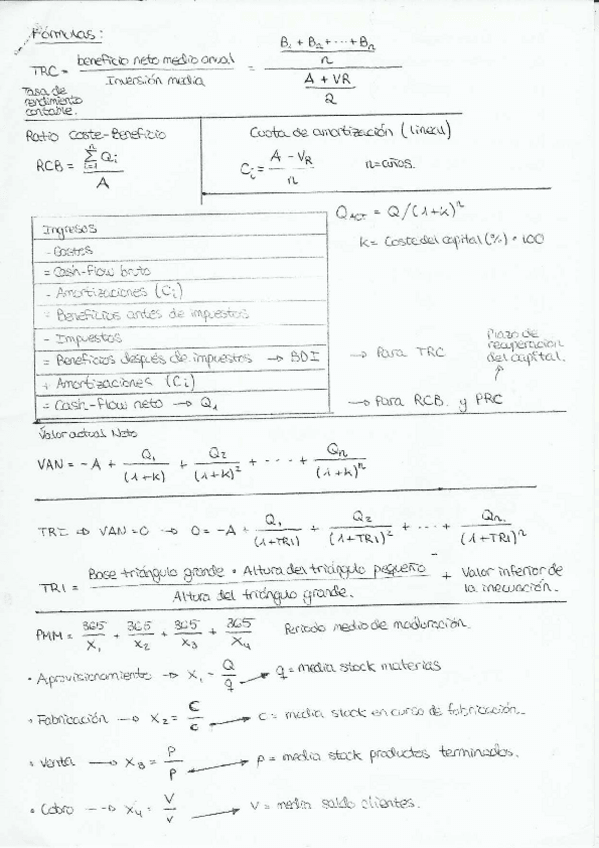 Fórmulas:
TRC = beneficio neto medio anual / Inversión media = (B₁ + B₂ + ··· + Bn / n) / (A + VR / 2)
Tasa de
rendimiento
contable.
Ratio Coste-Beneficio
RCB = Σ Qi / A
n
i=1
Cuota de amortización (lineal)
Ci = A - VR / n n=años.
Ingresos
- Costes
= Cash-flow bruto
- Amortizaciones (Ci)
= Beneficios antes de impuestos
- Impuestos
= Beneficios después de impuestos → BDI → Para TRC
+ Amortizaciones (Ci)
= Cash-flow neto → Q₁ → Para RCB y PRC
Q ACT = Q/(1+k)ⁿ
K = Coste del capital (%) · 100
Plazo de
recuperación
del capital.
Valor actual Neto
VAN = -A + Q₁/(1+k) + Q₂/(1+k)² + ··· + Qn/(1+k)ⁿ
TRI ⇒ VAN=0 → 0 = -A + Q₁/(1+TRI) + Q₂/(1+TRI)² + ··· + Qn/(1+TRI)ⁿ
TRI = Base triángulo grande · Altura del triángulo pequeño / Altura del triángulo grande. + Valor inferior de
la inecuación.
PMM = 365/X₁ + 365/X₂ + 365/X₃ + 365/X₄ Periodo medio de maduración.
· Aprovisionamiento → X₁ = Q/q → q = media stock materias
· Fabricación → X₂ = C/c → c = media stock en curso de fabricación.
· Venta → X₃ = P/p → p = media stock productos terminados.
· Cobro → X₄ = V/v → V = media saldo clientes.